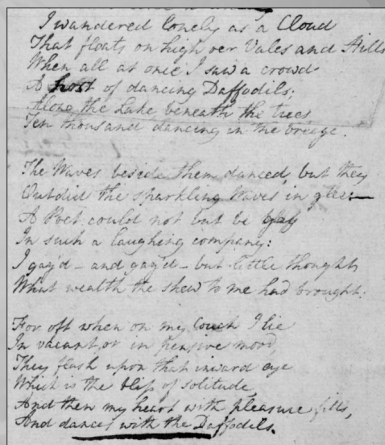 I wandered lonely as a Cloud
That floats on high oer Vales and Hills
When all at once I saw a crowd
A host of dancing Daffodils;
Along the Lake, beneath the trees,
Ten thousand dancing in the breeze.
The Waves beside them danced, but they
Outdid the sparkling Waves in glee—
A Poet could not but be gay
In such a laughing company:
I gaz'd – and gaz'd – but little thought
What wealth the shew to me had brought:
For oft when on my Couch I lie
In vacant, or in pensive mood,
They flash upon that inward eye
Which is the bliss of solitude,
And then my heart with pleasure fills,
And dances with the Daffodils.